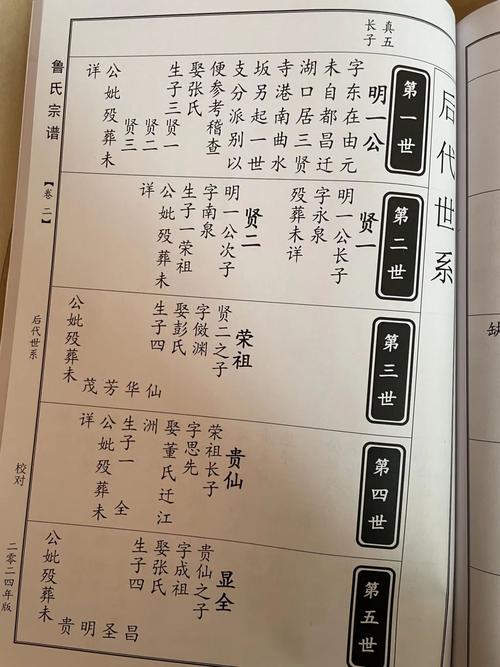 后代世系
真五
长子
第一世
明一公
字东在由元
未自都昌迁
湖口居三贤
寺港南曲水
坂另起一世
支分派别以
便参考稽查
娶张氏
生子三 贤一
贤二
贤三
公妣殁葬未
详
第二世
贤一
明一公长子
字永泉
殁葬未详
贤二
明一公次子
字南泉
生子一荣祖
公妣殁葬未
详
第三世
荣祖
贤二之子
字倣渊
娶彭氏
生子四
仙
华
芳
茂
公妣殁葬未
第四世
贵仙
荣祖长子
字思先
娶董氏迁江
洲
生子一 全
公妣殁葬未
详
第五世
显全
贵仙之子
字成祖
娶张氏
生子四
昌
圣
明
贵
公妣殁葬未
鲁氏宗谱
【卷二】
后代世系
校对
二零二四年版